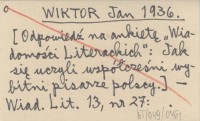 WIKTOR Jan 1936.
[Odpowiedź na ankietę „Wia-
domości Literackich": Jak
się uczyli współcześni wy-
bitni pisarze polscy.] —
Wiad. Lit. 13, nr 27: